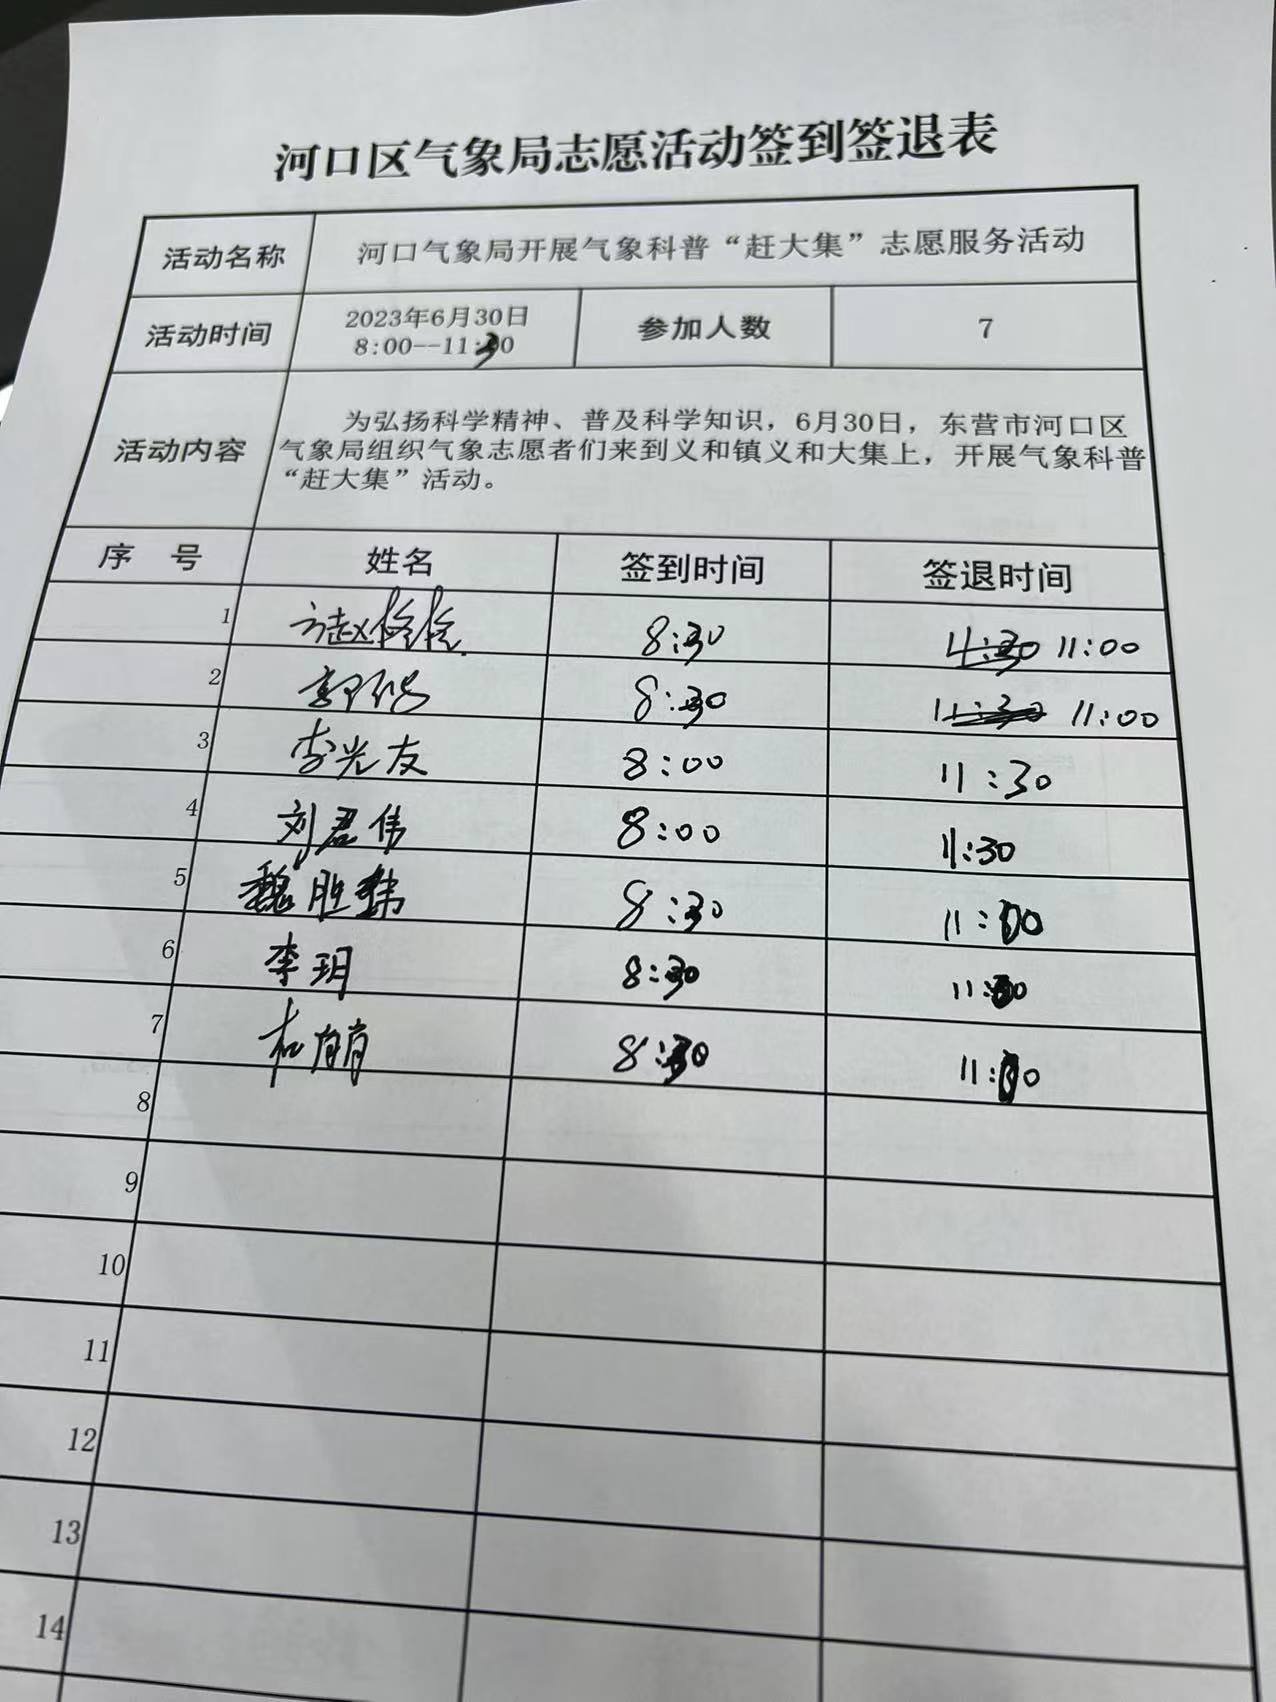 河口区气象局志愿活动签到签退表
活动名称 河口气象局开展气象科普“赶大集”志愿服务活动
活动时间 2023年6月30日 8:00--11:30 参加人数 7
活动内容
为弘扬科学精神、普及科学知识，6月30日，东营市河口区
气象局组织气象志愿者们来到义和镇义和大集上，开展气象科普
“赶大集”活动。
序 号 姓名 签到时间 签退时间
1 8:30 11:00
2 8:30 11:30 11:00
3 李光友 8:00 11:30
4 刘君伟 8:00 11:30
5 魏胜 8:30 11:00
6 李玥 8:30 11:00
7 8:30 11:00
8
9
10
11
12
13
14